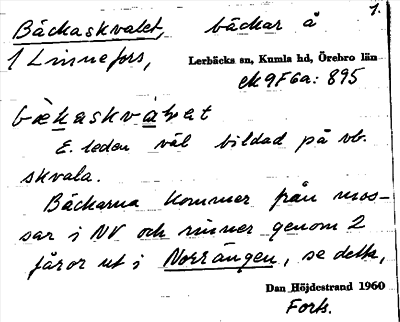 1.
Bäckaskvalet, bäckar å
1 Linnefors,
Lerbäcks sn, Kumla hd, Örebro län
ek 9F6a: 895
bɛ̀kaskvàlet
E. leden väl bildad på vb.
skvala.
Bäckarna kommer från mos-
sar i NV och rinner genom 2
fåror ut i Norrängen, se detta,
Dan Höjdestrand 1960
Forts.